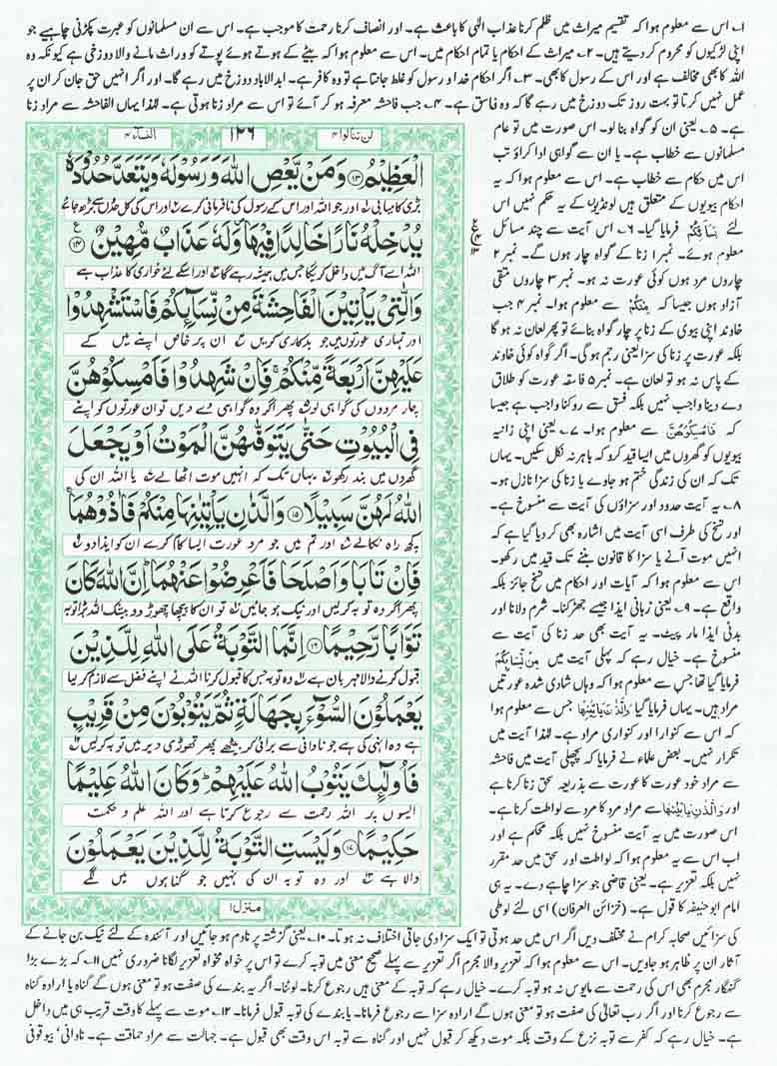 ۱۔ اس سے معلوم ہوا کہ تقسیم میراث میں ظلم کرنا عذاب الٰہی کا باعث ہے۔ اور انصاف کرنا رحمت کا موجب ہے۔ اس سے ان مسلمانوں کو عبرت پکڑنی چاہیے جو
اپنی لڑکیوں کو محروم کر دیتے ہیں۔ ۲۔ میراث کے احکام یا تمام احکام میں۔ اس سے معلوم ہوا کہ بیٹے کے ہوتے ہوئے پوتے کو وراث مانے والا دوزخی ہے کیونکہ وہ
اللہ کا بھی مخالف ہے اور اس کے رسول کا بھی۔ ۳۔ اگر احکام خدا و رسول کو غلط جانتا ہے تو وہ کافر ہے۔ ابدالاباد دوزخ میں رہے گا۔ اور اگر انہیں حق جان کر ان پر
عمل نہیں کرتا تو بہت روز تک دوزخ میں رہے گا کہ وہ فاسق ہے۔ ۴۔ جب فاحشہ معرفہ ہو کر آئے تو اس سے مراد زنا ہوتی ہے۔ لہٰذا یہاں الفاحشہ سے مراد زنا
ہے۔ ۵۔ یعنی ان کو گواہ بنا لو۔ اس صورت میں تو عام
مسلمانوں سے خطاب ہے۔ یا ان سے گواہی ادا کراؤ تب
اس میں حکام سے خطاب ہے۔ اس سے معلوم ہوا کہ یہ
احکام بیویوں کے متعلق ہیں لونڈیوں کے یہ حکم نہیں اس
لئے نِسَآئِكُمْ فرمایا گیا۔ ۶۔ اس آیت سے چند مسائل
معلوم ہوئے۔ نمبر ۱ زنا کے گواہ چار ہوں گے۔ نمبر ۲
چاروں مرد ہوں کوئی عورت نہ ہو۔ نمبر ۳ چاروں متقی
آزاد ہوں جیسا کہ مِنْكُمْ سے معلوم ہوا۔ نمبر ۴ جب
خاوند اپنی بیوی کے زنا پر چار گواہ بنائے تو پھر لعان نہ ہو گا
بلکہ عورت پر زنا کی سزا یعنی رجم ہو گی۔ اگر گواہ کوئی خاوند
کے پاس نہ ہو تو لعان ہے۔ نمبر ۵ فاسقہ عورت کو طلاق
دے دینا واجب نہیں بلکہ فسق سے روکنا واجب ہے جیسا
کہ فَامْسِكُوْهُنَّ سے معلوم ہوا۔ ۷۔ یعنی اپنی زانیہ
بیویوں کو گھروں میں ایسا قید کرو کہ باہر نہ نکل سکیں۔ یہاں
تک کہ ان کی زندگی ختم ہو جاوے یا زنا کی سزا نازل ہو۔
۸۔ یہ آیت حدود اور سزاؤں کی آیت سے منسوخ ہے۔
اور نسخ کی طرف اسی آیت میں اشارہ بھی کر دیا گیا ہے کہ
انہیں موت آنے یا سزا کا قانون بننے تک قید میں رکھو۔
اس سے معلوم ہوا کہ آیات اور احکام میں نسخ جائز بلکہ
واقع ہے۔ ۹۔ یعنی زبانی ایذا جیسے جھڑکنا۔ شرم دلانا اور
بدنی ایذا مار پیٹ۔ یہ آیت بھی حد زنا کی آیت سے
منسوخ ہے۔ خیال رہے کہ پہلی آیت میں مِنْ نِّسَآئِكُمْ
فرمایا گیا تھا جس سے معلوم ہوا کہ وہاں شادی شدہ عورتیں
مراد ہیں۔ یہاں فرمایا گیا وَالَّذٰنِ يَاْتِيٰنِهَا جس سے معلوم ہوا
کہ اس سے کنوارا اور کنواری مراد ہے۔ لہٰذا آیت میں
تکرار نہیں۔ بعض علماء نے فرمایا کہ پچھلی آیت میں فاحشہ
سے مراد خود عورت کا عورت سے بذریعہ سحق زنا کرنا ہے
اور وَالَّذٰنِ يَاْتِيٰنِهَا سے مراد مرد کا مرد سے لواطت کرنا ہے۔
اس صورت میں یہ آیت منسوخ نہیں بلکہ محکم ہے اور
اب اس سے یہ معلوم ہوا کہ لواطت اور سحق میں حد مقرر
نہیں بلکہ تعزیر ہے۔ یعنی قاضی جو سزا چاہے دے۔ یہ ہی
امام ابو حنیفہ کا قول ہے۔ (خزائن العرفان) اسی لئے لوطی
لن تنالوا ۴
۱۲۶
النسآء ۴
الْعَظِيْمُ ﴿۱۳﴾ وَمَنْ يَّعْصِ اللهَ وَرَسُوْلَهٗ وَيَتَعَدَّ حُدُوْدَهٗ
بڑی کامیابی اور جو اللہ اور اس کے رسول کی نافرمانی کرے اور اس کی کل حدوں سے بڑھ جائے
يُدْخِلْهُ نَارًا خَالِدًا فِيْهَا وَلَهٗ عَذَابٌ مُّهِيْنٌ ﴿۱۴﴾
اللہ اسے آگ میں داخل کریگا جس میں ہمیشہ رہے گا اور اسکے لئے خواری کا عذاب ہے
وَالّٰتِيْ يَاْتِيْنَ الْفَاحِشَةَ مِنْ نِّسَآئِكُمْ فَاسْتَشْهِدُوْا
اور تمہاری عورتوں میں جو بدکاری کریں ان پر خاص اپنے میں کے
عَلَيْهِنَّ اَرْبَعَةً مِّنْكُمْ فَاِنْ شَهِدُوْا فَاَمْسِكُوْهُنَّ
چار مردوں کی گواہی لو پھر اگر وہ گواہی دے دیں تو ان عورتوں کو اپنے
فِي الْبُيُوْتِ حَتّٰى يَتَوَفّٰىهُنَّ الْمَوْتُ اَوْ يَجْعَلَ
گھروں میں بند رکھو یہاں تک کہ انہیں موت اٹھا لے یا اللہ ان کی
اللهُ لَهُنَّ سَبِيْلًا ﴿۱۵﴾ وَالَّذٰنِ يَاْتِيٰنِهَا مِنْكُمْ فَاٰذُوْهُمَا
کچھ راہ نکالے اور تم میں جو مرد عورت ایسا کام کرے ان کو ایذا دو
فَاِنْ تَابَا وَاَصْلَحَا فَاَعْرِضُوْا عَنْهُمَا اِنَّ اللهَ كَانَ
پھر اگر وہ توبہ کر لیں اور نیک ہو جائیں تو ان کا پیچھا چھوڑ دو بیشک اللہ بڑا توبہ
تَوَّابًا رَّحِيْمًا ﴿۱۶﴾ اِنَّمَا التَّوْبَةُ عَلَى اللهِ لِلَّذِيْنَ
قبول کرنے والا مہربان ہے وہ توبہ جس کا قبول کرنا اللہ نے اپنے فضل سے لازم کر لیا
يَعْمَلُوْنَ السُّوْٓءَ بِجَهَالَةٍ ثُمَّ يَتُوْبُوْنَ مِنْ قَرِيْبٍ
ہے وہ انہی کی ہے جو نادانی سے برائی کر بیٹھے پھر تھوڑی دیر میں توبہ کر لیں
فَاُولٰٓئِكَ يَتُوْبُ اللهُ عَلَيْهِمْ وَكَانَ اللهُ عَلِيْمًا
ایسوں پر اللہ رحمت سے رجوع کرتا ہے اور اللہ علم و حکمت
حَكِيْمًا ﴿۱۷﴾ وَلَيْسَتِ التَّوْبَةُ لِلَّذِيْنَ يَعْمَلُوْنَ
والا ہے اور وہ توبہ ان کی نہیں جو گناہوں میں لگے
منزل ۱
کی سزائیں صحابہ کرام نے مختلف دیں اگر اس میں حد ہوتی تو ایک سزا دی جاتی اختلاف نہ ہوتا۔ ۱۰۔ یعنی گزشتہ پر نادم ہو جائیں اور آئندہ کے لئے نیک بن جانے کے
آثار ان پر ظاہر ہو جاویں۔ اس سے معلوم ہوا کہ تعزیر والا مجرم اگر تعزیر سے پہلے صحیح معنی میں توبہ کرے تو اس پر خواہ مخواہ تعزیر لگانا ضروری نہیں ۱۱۔ کہ بڑے بڑا
گنہگار مجرم بھی اس کی رحمت سے مایوس نہ ہو توبہ کرے۔ خیال رہے کہ توبہ کے معنی ہیں رجوع کرنا۔ لوٹنا۔ اگر یہ بندے کی صفت ہو تو معنی ہوں گے گناہ یا ارادہ گناہ
سے رجوع کرنا اور اگر رب تعالیٰ کی صفت ہو تو معنی ہوں گے ارادہ سزا سے رجوع فرمانا۔ یا بندے کی توبہ قبول فرمانا۔ ۱۲۔ موت سے پہلے کا وقت قریب ہی میں داخل
ہے۔ خیال رہے کہ کفر سے توبہ نزع کے وقت بلکہ موت دیکھ کر قبول نہیں اور گناہ سے توبہ اس وقت بھی قبول ہے۔ جہالت سے مراد حماقت ہے۔ نادانی‘ بیوقوفی